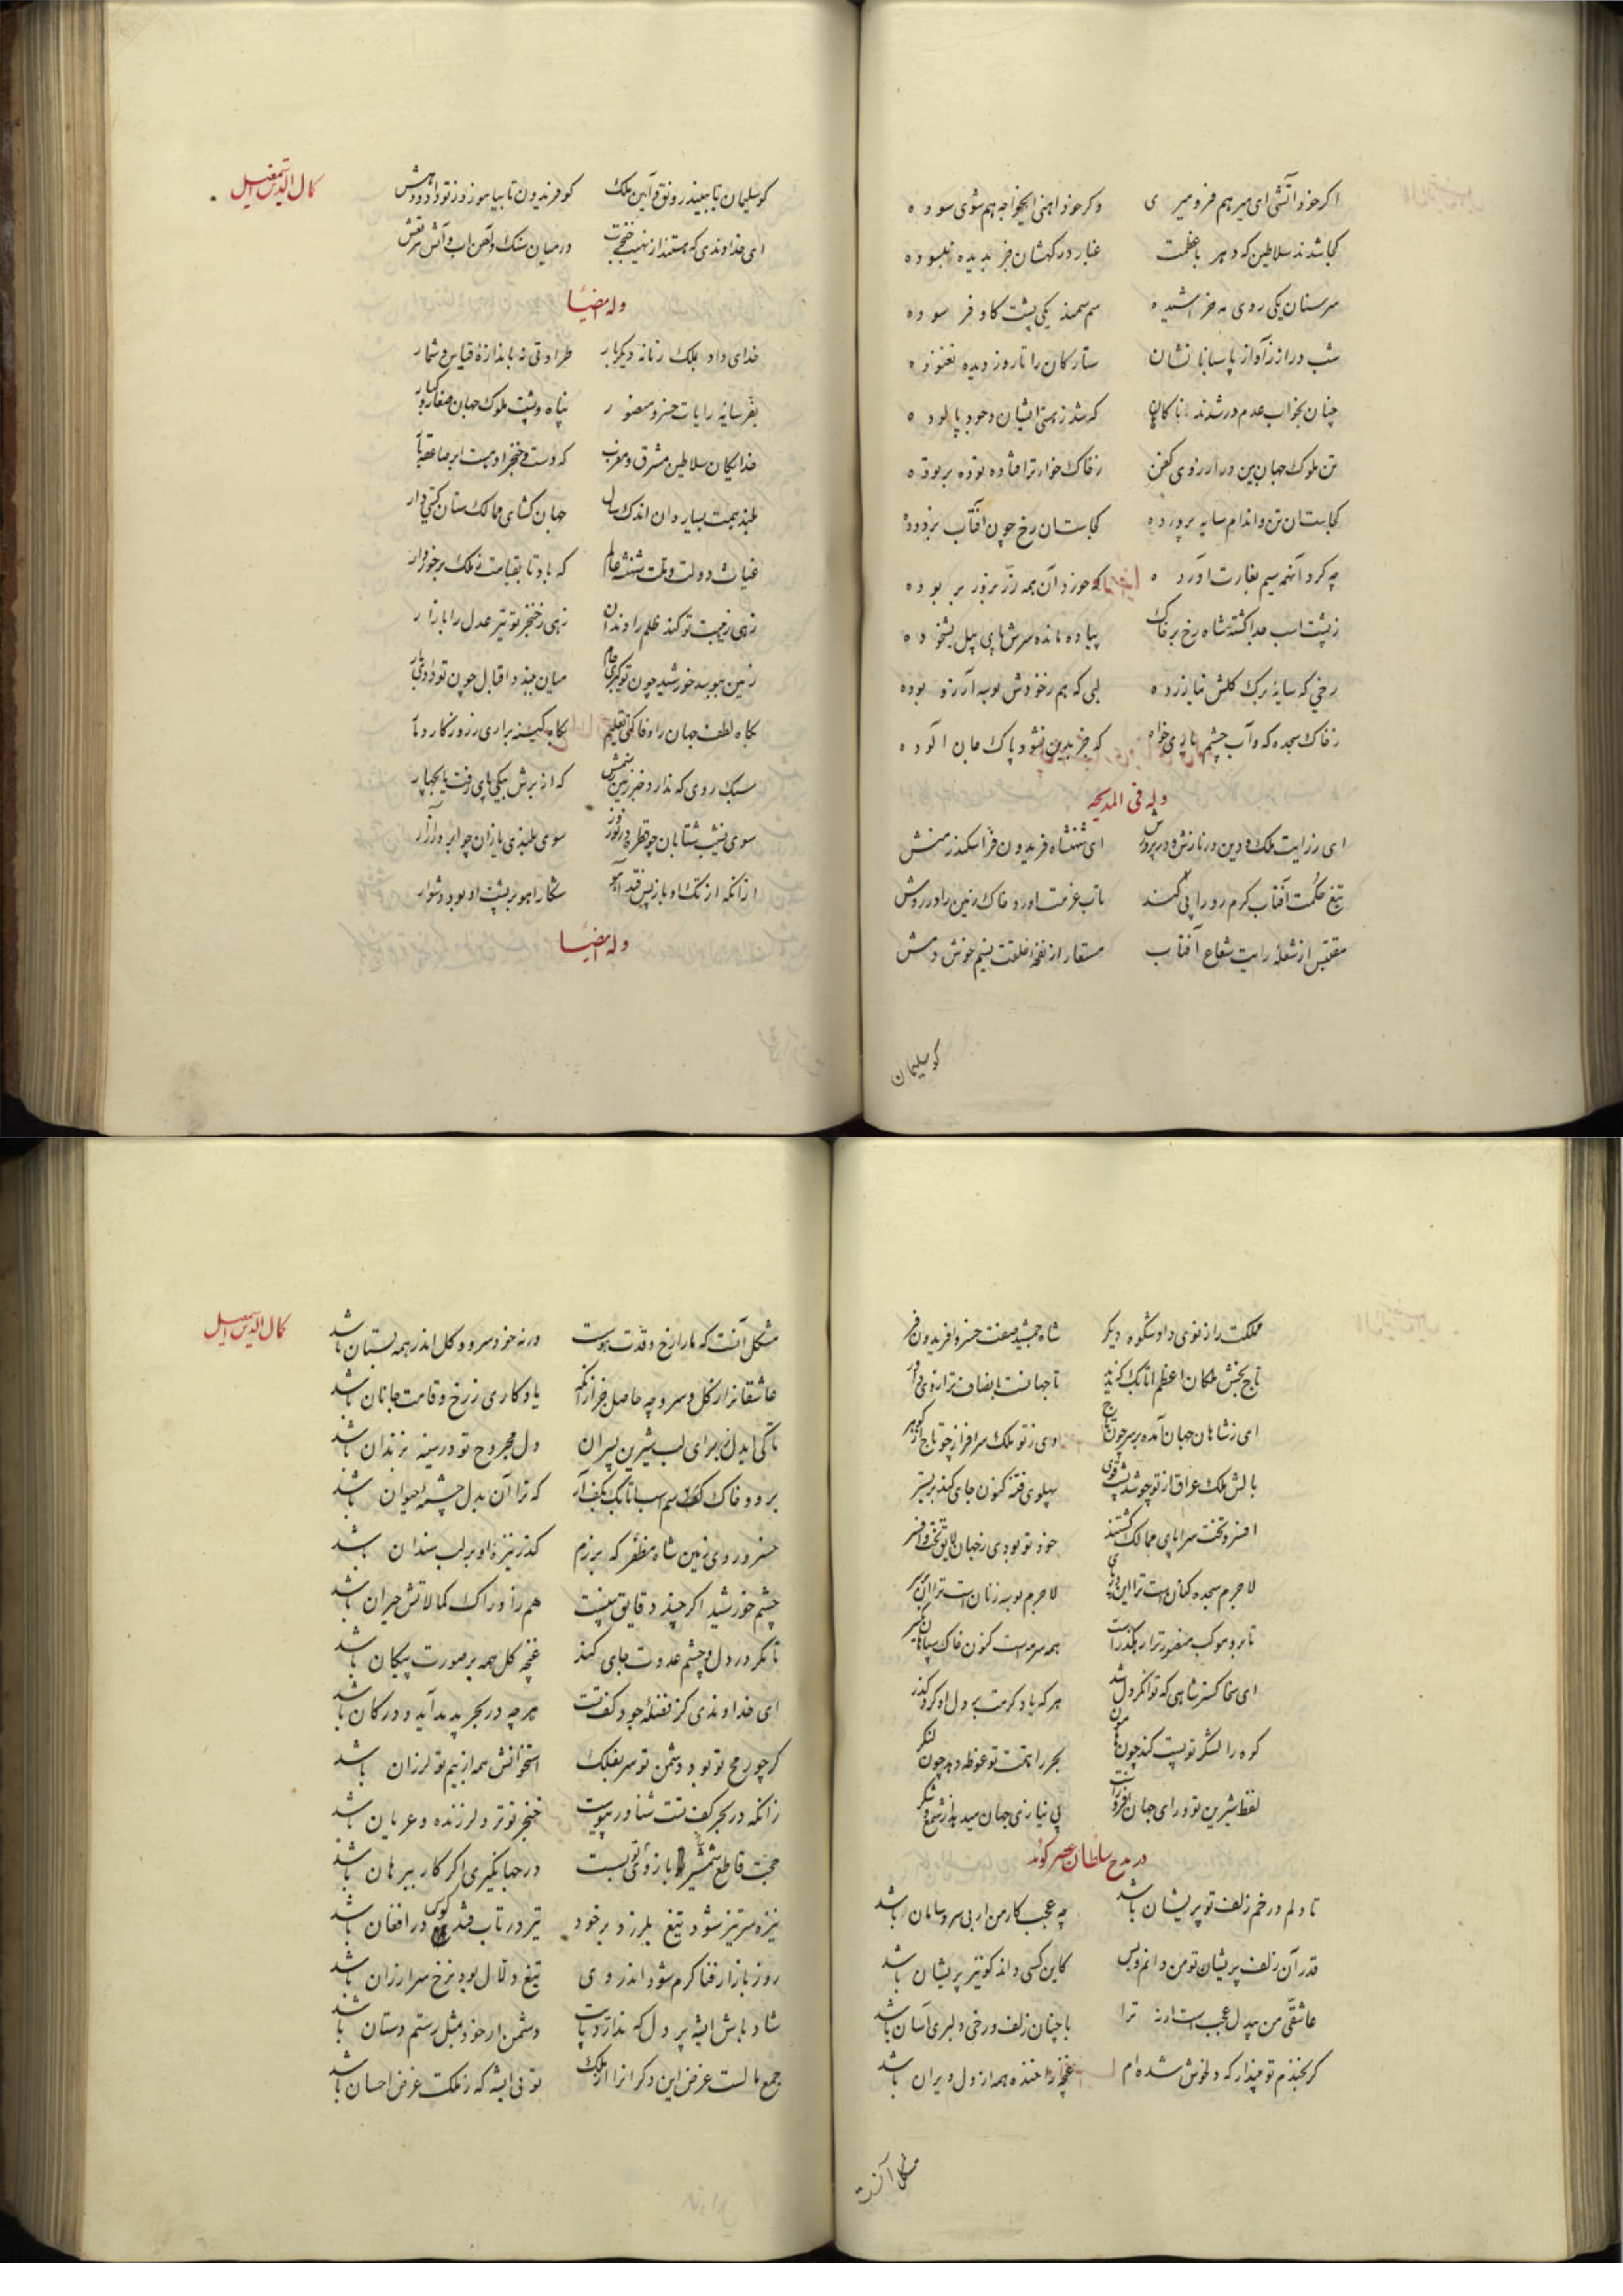 اکر خود آتشی ای میر هم فرو میری    وکر خود آهنی ایخواجه هم شوی سوده
کجا شدند سلاطین که دهر با عظمت    غبار درکهشان جز بدیده نبسوده
سر سنان یکی روی مه خراشیده    سم سمند یکی پشت کاو فرسوده
شب دراز ز آواز پاسبانانشان    ستارکان را تا روز دیده نغنوده
چنان بخواب عدم در شدند ناکاهان    که شد ز هستی ایشان وجود پالوده
تن ملوک جهان بین در آرزوی کفن    ز خاک خوارتر افتاده توده بر توده
کجاست آن تن و اندام سایه پرورده    کجاست آن رخ چون آفتاب بزدوده
چه کرد آنهمه سیم بغارت آورده    که خورد آن همه زرّ بزور بربوده
ز پشت اسب جدا کشته شاه رخ بر خاک    پیاده مانده سرش پای پیل بشخوده
رخی که سایهٔ برک کلش نیازرده    لبی که هم ز خودش بوسه آرزو بوده
ز خاک سجده که و آب چشم یاری خواه    که جز بدین نشود پاک جان آلوده
وله فی المدیحه
ای ز رایت ملک و دین در نازش و در پرورش    ای شهنشاه فریدون فر اسکندر منش
تیغ حکمت آفتاب کرم رو را پی کند    تاب عزمت آورد خاک زمین را در روش
مقتبس از شعلهٔ رایت شعاع آفتاب    مستعار از نفحهٔ خلقت نسیم خوش دمش
کو سلیمان
کمال الدین اسمعیل
کو سلیمان تا ببیند رونق و آیین ملک    کو فریدون تا بیاموزد ز تو داد و دهش
ای خداوندی که هستند از نهیب خنجرت    در میان سنک و آهن آب و آتش مرتعش
وله ایضاً
خدای داد بملک زمانه دیکر بار    طراوتی نه باندازهٔ قیاس و شمار
بفر سایهٔ رایات خسرو منصور    پناه و پشت ملوک جهان صغار و کبار
خدایکان سلاطین مشرق و مغرب    که دست و خنجر او هست ابر صاعقه بار
بلند همت بسیار دان اندک سال    جهان کشای ممالک ستان کیتی دار
غیاث دولت و ملت شهنشه عالم    که باد تا بقیامت ز ملک برخوردار
زهی ز هیبت تو کند ظلم را دندان    زهی ز خنجر تو تیز عدل را بازار
زمین ببوسد خورشید چون تو کیری جام    میان ببندد اقبال چون تو دادی بار
بکاه لطف جهان را وفا کنی تعلیم    بکاه کینه براری ز روزکار دمار
سبک روی که ندارد خبر زمین ز سمش    که از برش بیکی پای رفت یا بچهار
سوی نشیب شتابان چو قطره در نوروز    سوی بلندی یازان چو ابر در آزار
از انکه از تک او باز پس فتد آهو    شکار آهو بر پشت او بود دشوار
وله ایضاً
مملکت را ز نوی داد شکوه دیکر    شاه جمشید صفت خسرو افریدون فر
تاج بخش ملکان اعظم اتابک که ندید    تا جهانست بانصاف تر از وی داور
ای ز شاهان جهان آمده بر سر چون تاج    وی ز تو ملک سرافراز چو تاج از کوهر
بالش ملک عراق از تو چو شد پشت قوی    پهلوی فتنه کنون جای کند بر بستر
افسر و تخت سراپای ممالک کشتند    خود تو بودی ز جهان لایق تخت و افسر
لاجرم سجده کنانست ترا این در پای    لاجرم بوسه زنانست ترا آن بر سر
تا برو موکب منصور ترا رهکذرست    همه سرمه است کنون خاک سپاهان یکسر
ای سخا کستر شاهی که توانکر دل شد    هر که یاد کرمت بر دل او کرد کذر
کوه را لشکر تو پست کند چون هامون    بحر را همت تو غوطه دهد چون لنکر
لفظ شیرین تو و رای جهان افروزت    بی نیازی جهان میدهد از شمع و شکر
در مدح سلطان عصر کوید
تا دلم در خم زلف تو پریشان باشد    چه عجب کار من ار بی سر و سامان باشد
قدر آن زلف پریشان تو من دانم و بس    کاین کسی داند کو نیز پریشان باشد
عاشقی من بیدل عجبست ار نه ترا    با چنان زلف و رخی دلبری آسان باشد
کر بخندم تو مپندار که دلخوش شده ام    غنچه را خنده همه از دل ویران باشد
مشکل آنست
کمال الدین اسمعیل
مشکل آنست که ما را رخ و قدت هوست    ورنه خود سرو و کل اندر همه بستان باشد
عاشقانرا ز کل و سرو چه حاصل جز از آنکه    یادکاری ز رخ و قامت جانان باشد
تا کی ایدل ز برای لب شیرین پسران    دل مجروح تو در سینه بزندان باشد
برو و خاک کف سم اسب اتابک بکف آر    که ترا آن بدل چشمهٔ حیوان باشد
خسرو روی زمین شاه مظفر که برزم    کذر نیزهٔ او بر لب سندان باشد
چشم خورشید اکر چند دقایق بینست    هم ز ادراک کمالاتش حیران باشد
تا مکر در دل و چشم عدوت جای کند    غنچه کل همه بر صورت پیکان باشد
ای خداوندی کز فضلهٔ جود کف تست    هر چه در بحر پدید آید و در کان باشد
کر چو رمح تو بود دشمن تو سر بفلک    استخوانش همه از بیم تو لرزان باشد
زانکه در بحر کف تست شناور پیوست    خنجر تو تر و لرزنده و عریان باشد
حجت قاطع شمشیر ببازوی تو بست    در جهانکیری اکر کار ببرهان باشد
نیزه سرتیز شود تیغ بلرزد بر خود    تیر در تاب فتد کوس در افغان باشد
روز بازار فنا کرم شود اندر وی    تیغ دلّال بود نرخ سر ارزان باشد
شاد باش ای شه پر دل که ندارد پایت    دشمن ار خود بمثل رستم دستان باشد
جمع مالست غرض این دکرانرا از ملک    توئی ای شه که ز ملکت غرض احسان باشد